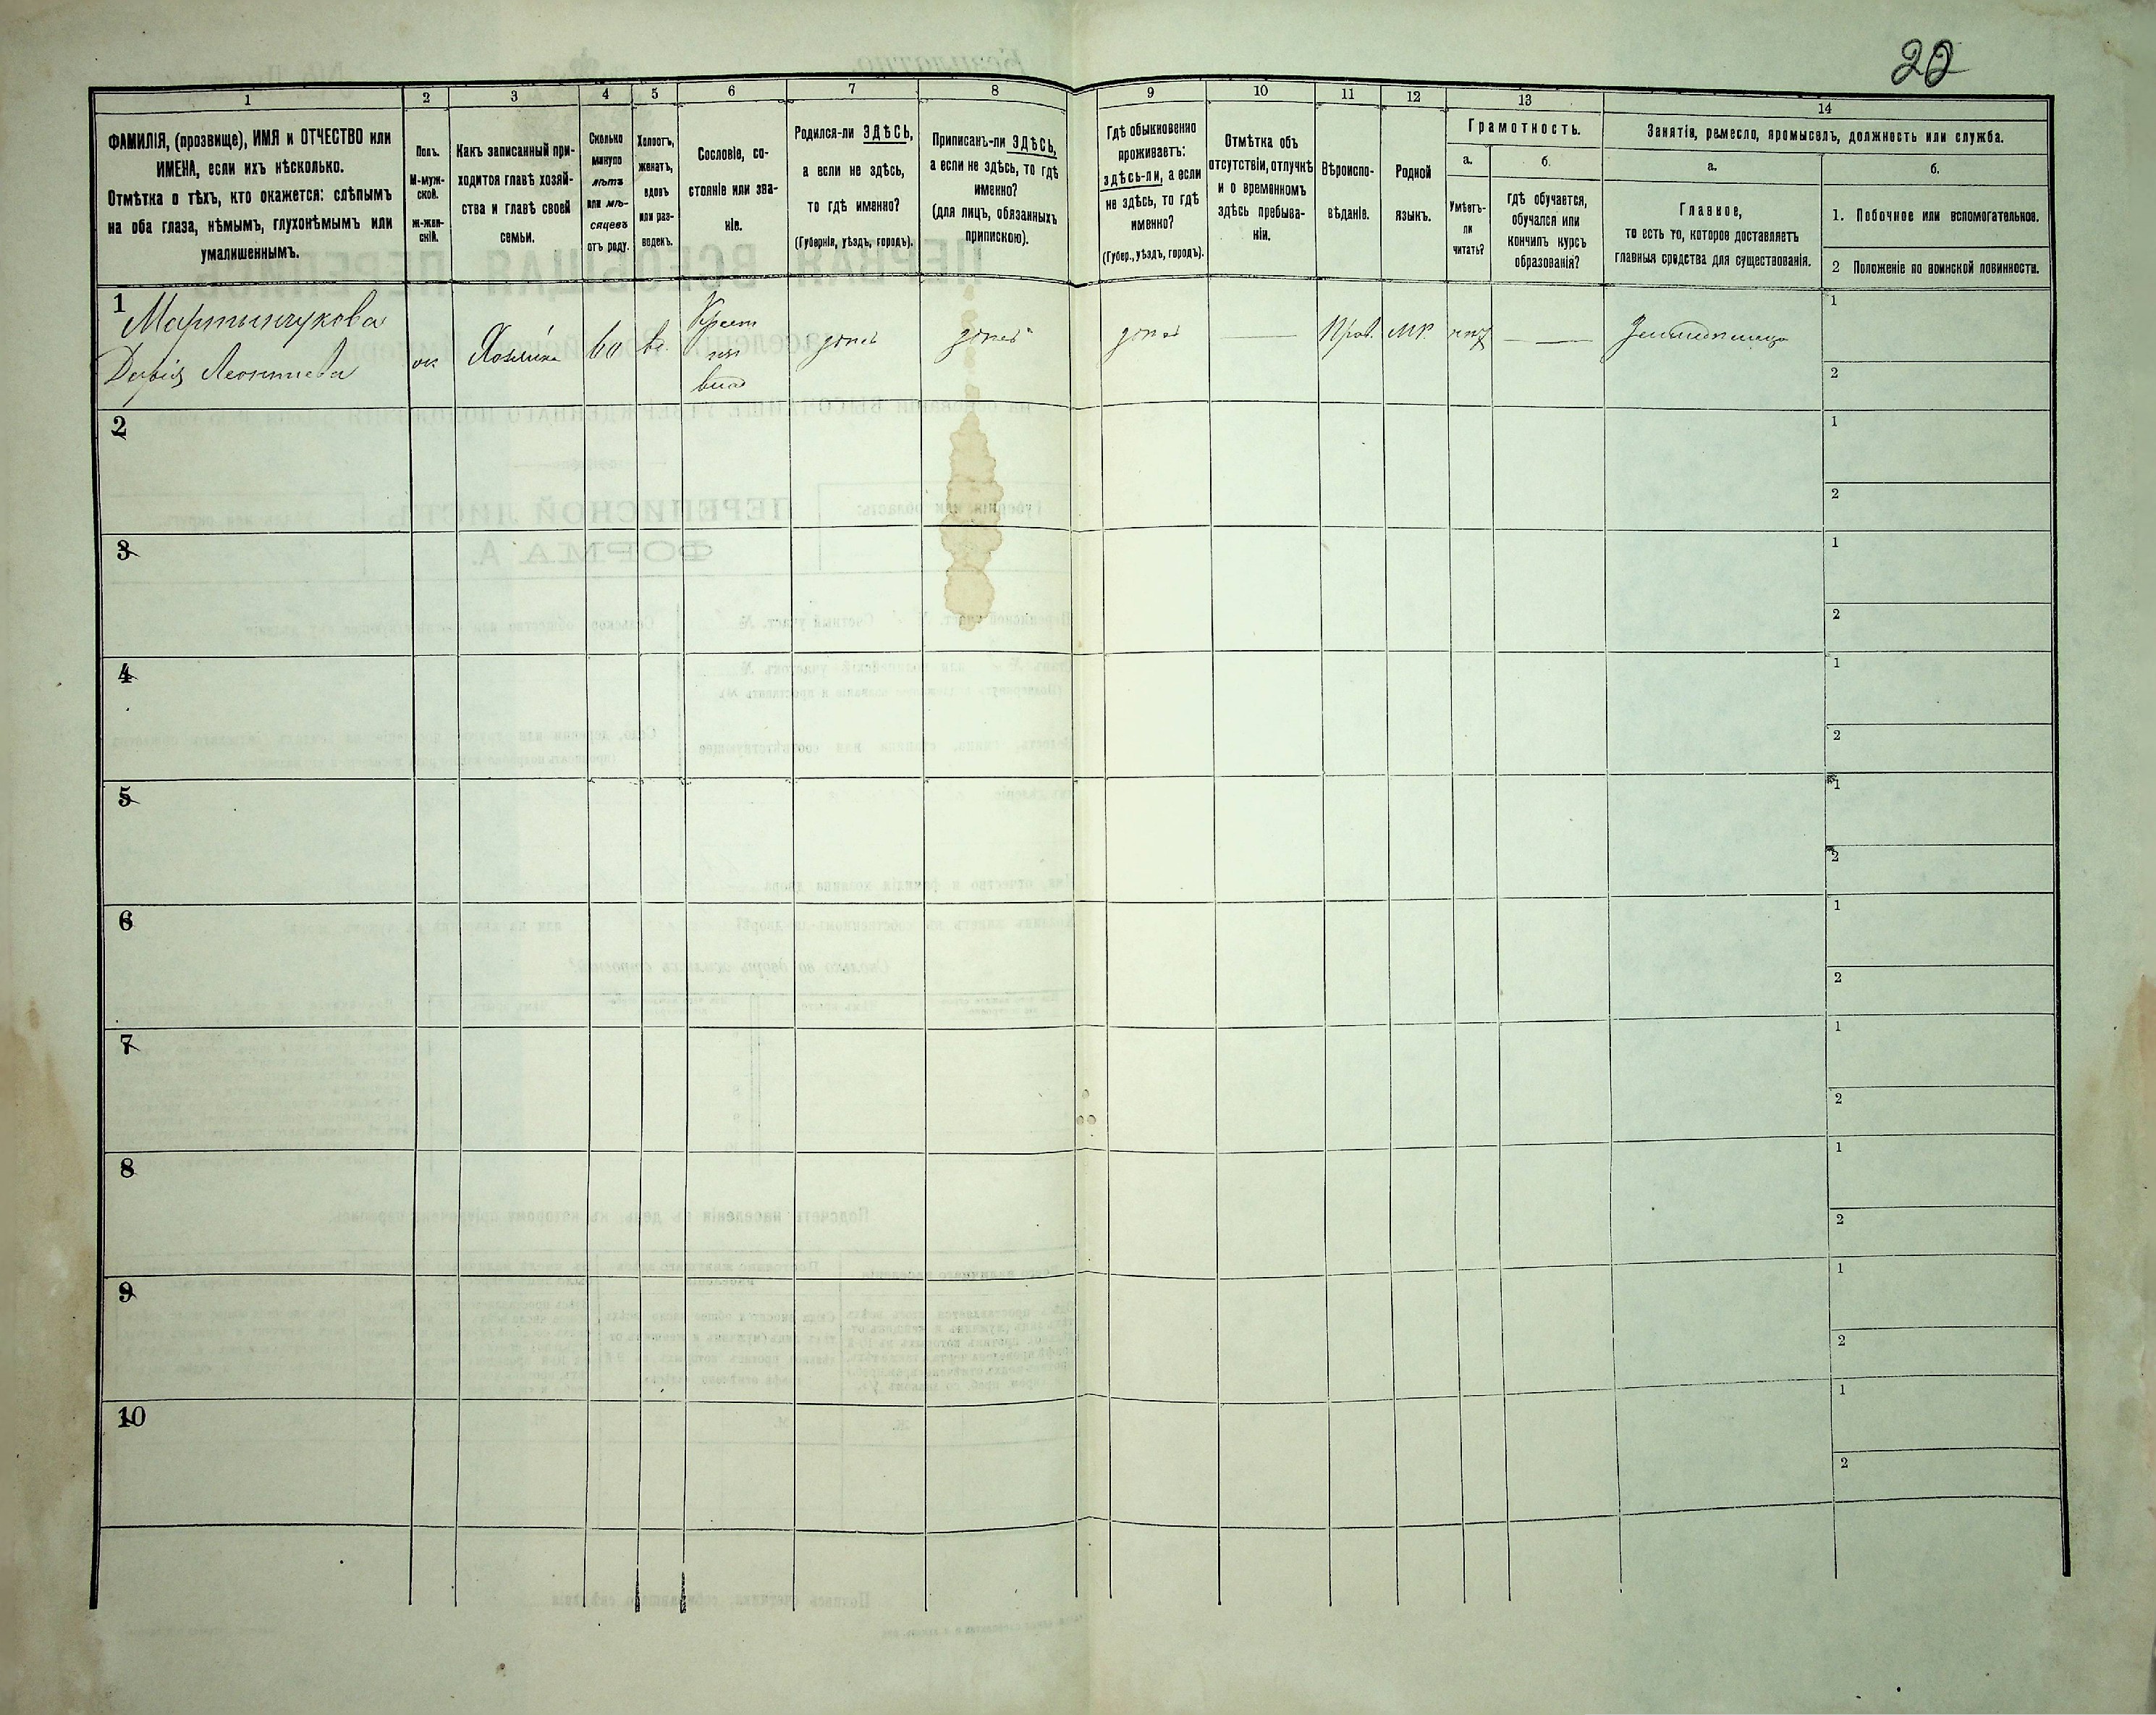 22
1 2 3 4 5 6 7 8 9 10 11 12 13 14
ФАМИЛІЯ, (прозвище), ИМЯ и ОТЧЕСТВО или
ИМЕНА, если ихъ нѣсколько.
Отмѣтка о тѣхъ, кто окажется: слѣпымъ
на оба глаза, нѣмымъ, глухонѣмымъ или
умалишеннымъ.
Полъ.
М-муж-
ской.
ж-жен-
скій.
Какъ записанный при-
ходится главѣ хозяй-
ства и главѣ своей
семьи.
Сколько
минуло
лѣтъ
или мѣ-
сяцевъ
отъ роду.
Холостъ,
женатъ,
вдовъ
или раз-
веденъ.
Сословіе, со-
стояніе или зва-
ніе.
Родился-ли ЗДѢСЬ,
а если не здѣсь,
то гдѣ именно?
(Губернія, уѣздъ, городъ).
Приписанъ-ли ЗДѢСЬ,
а если не здѣсь, то гдѣ
именно?
(для лицъ, обязанныхъ
припискою).
Гдѣ обыкновенно
проживаетъ:
здѣсь-ли, а если
не здѣсь, то гдѣ
именно?
(Губер., уѣздъ, городъ).
Отмѣтка объ
отсутствіи, отлучкѣ
и о временномъ
здѣсь пребыва-
ніи.
Вѣроиспо-
вѣданіе.
Родной
языкъ.
Грамотность.
а.
Умѣетъ-
ли
читать?
б.
гдѣ обучается,
обучался или
кончилъ курсъ
образованія?
Занятія, ремесло, промыселъ, должность или служба.
а.
Главное,
то есть то, которое доставляетъ
главныя средства для существованія.
б.
1. Побочное или вспомогательное.
2 Положеніе по воинской повинности.
1
Мартынчукова
Дарія Леонтиева
ж
Хозяйка
60
вд.
Крест
из
влад
здѣсь
здѣсь
здѣсь
Прав.
мр.
нѣт
1
2
2
1
2
3
1
2
4
1
2
5
1
2
6
1
2
7
1
2
8
1
2
9
1
2
10
1
2